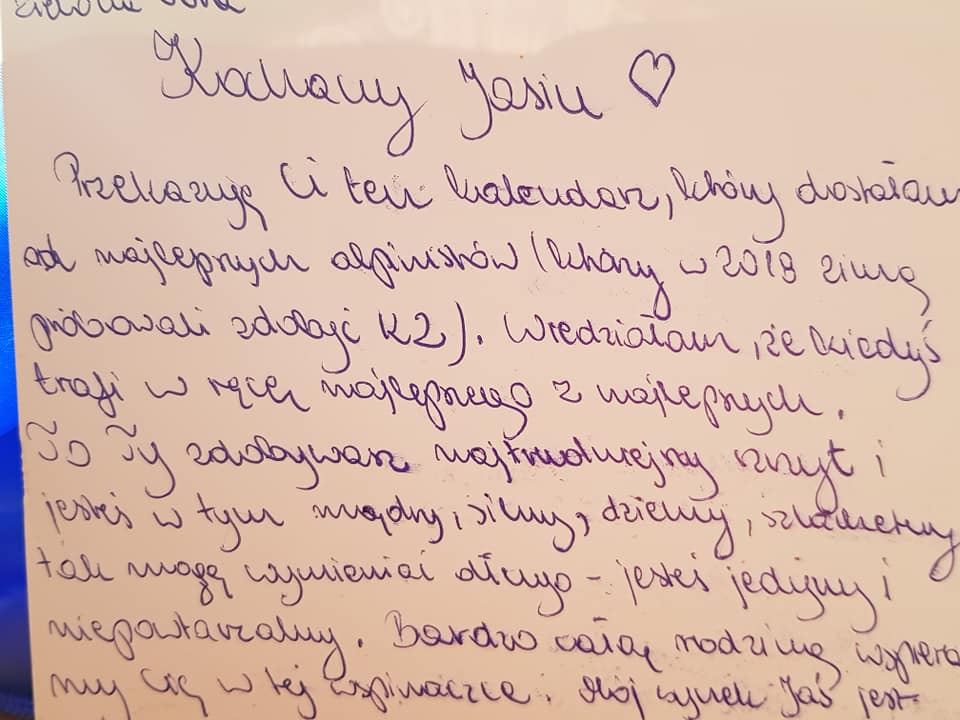 Kochany Jasiu ♡
Przekazuję Ci ten kalendarz, który dostałam
od najlepszych alpinistów (którzy w 2018 zimą
próbowali zdobyć K2). Wiedziałam, że kiedyś
trafi w ręce najlepszego z najlepszych.
To Ty zdobywasz najtrudniejszy szczyt i
jesteś w tym mądry, silny, dzielny, szlachetny
tak mogę wymieniać długo - jesteś jedyny i
niepowtarzalny. Bardzo całą rodziną wspiera
my Cię w tej wspinaczce. Mój synek Jaś jest